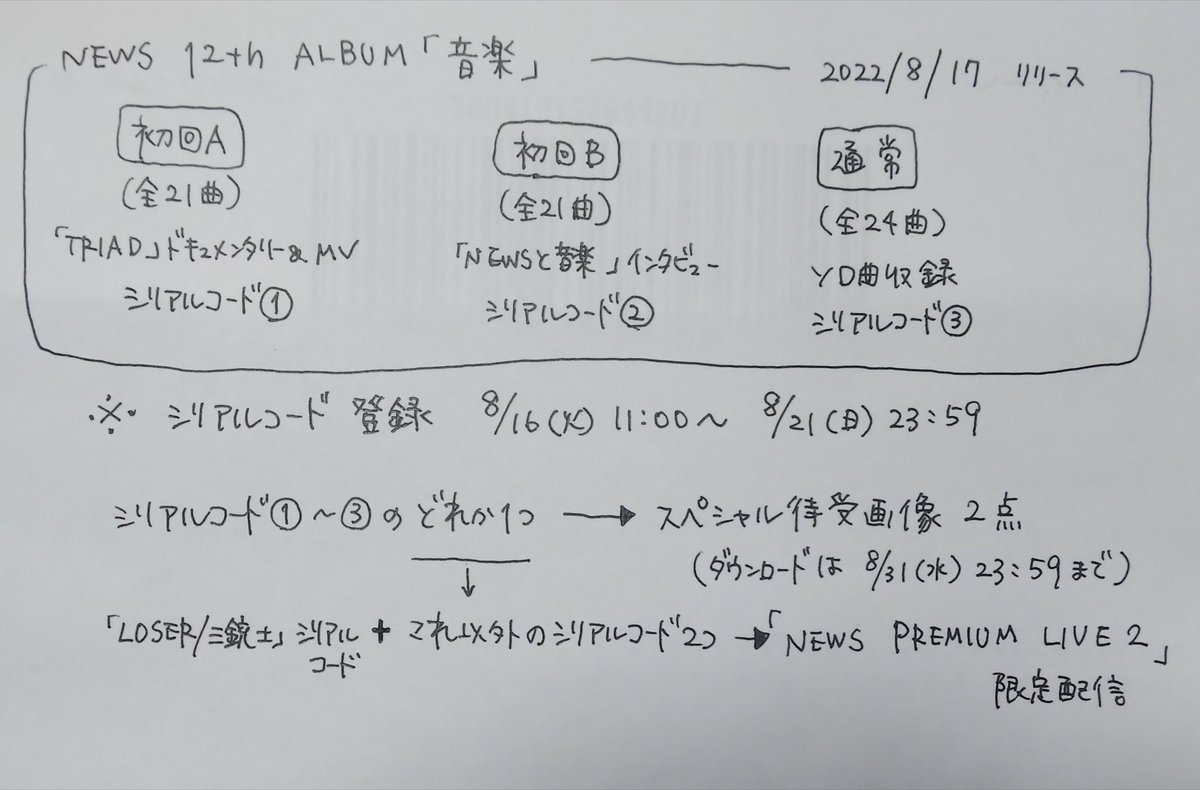 NEWS 12th ALBUM「音楽」 2022/8/17 リリース
初回A 初回B 通常
(全21曲) (全21曲) (全24曲)
「TRIAD」ドキュメンタリー&MV 「NEWSと音楽」インタビュー YD曲収録
シリアルコード① シリアルコード② シリアルコード③
※ シリアルコード 登録 8/16(火) 11:00〜 8/21(日) 23:59
シリアルコード①〜③のどれか1つ → スペシャル待受画像 2点
(ダウンロードは 8/31(水) 23:59まで)
↓
「LOSER/三銃士」シリアルコード + これ以外のシリアルコード2つ →「NEWS PREMIUM LIVE 2」
限定配信